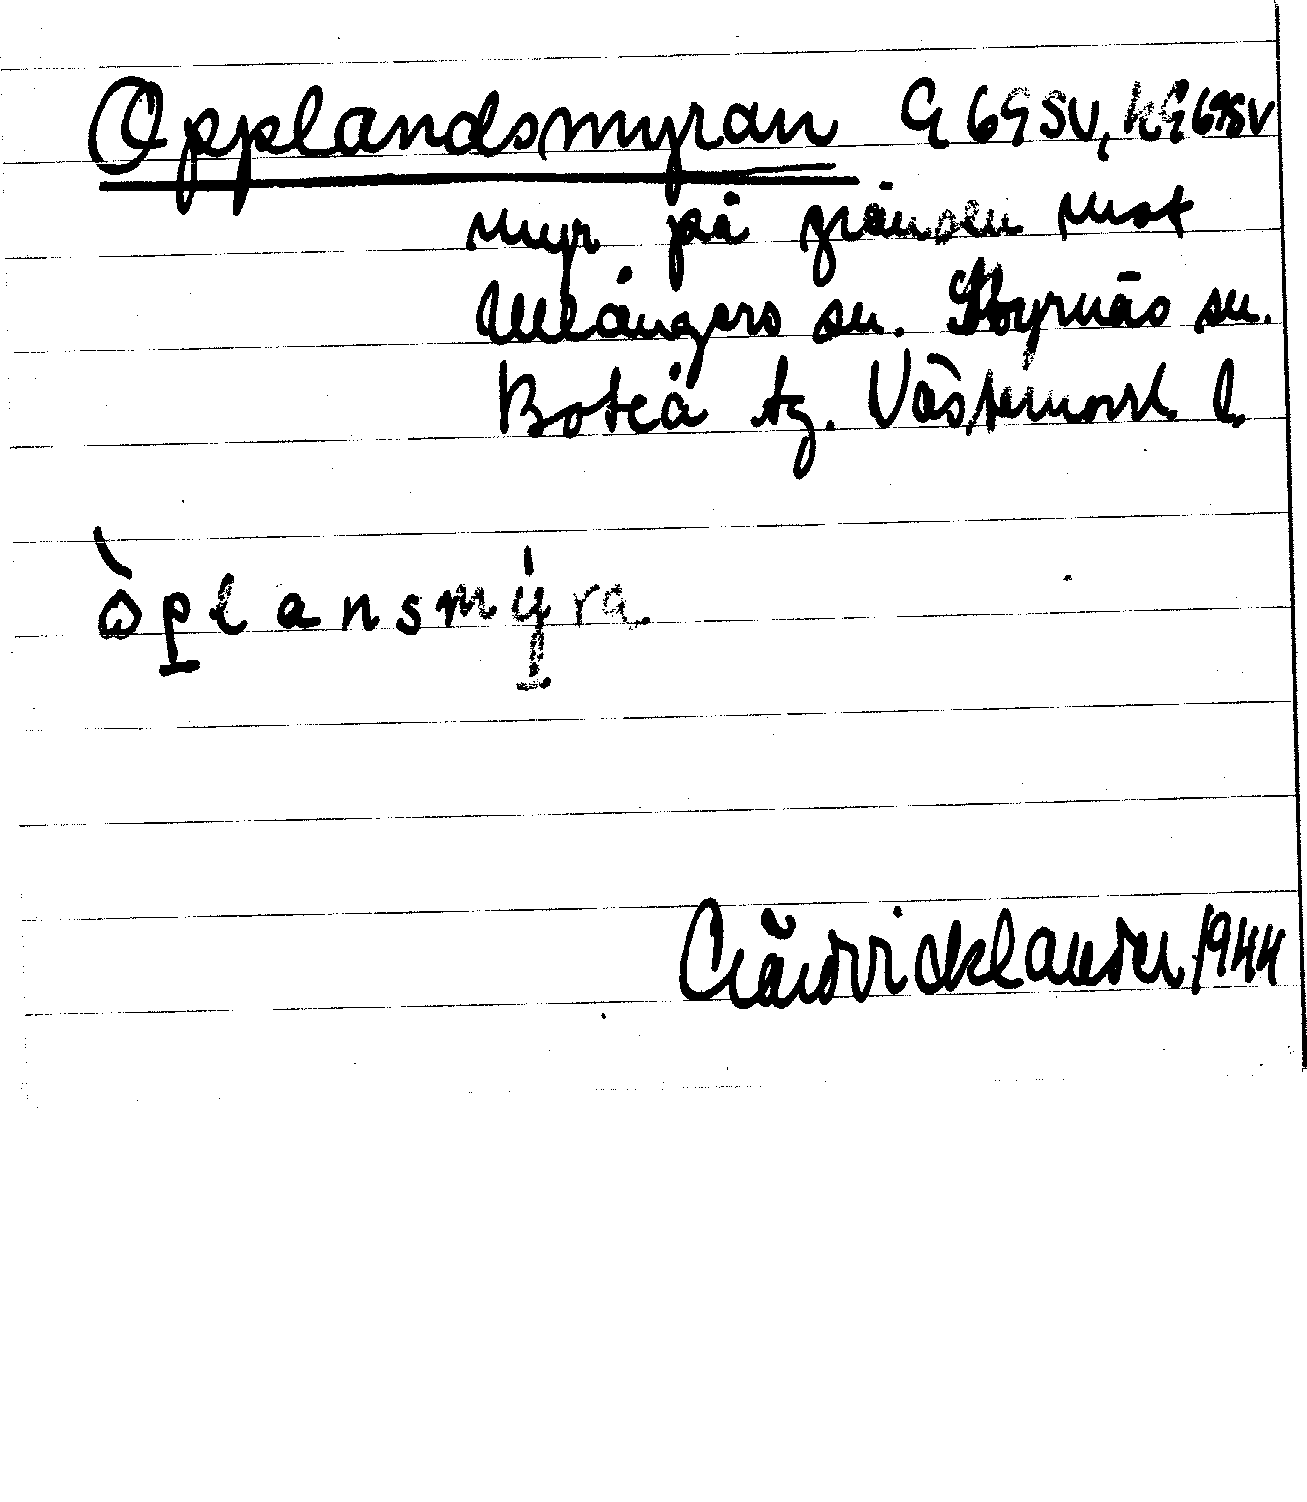 Opplandsmyran G 69 SV, hG 69 SV
myr på gränsen mot
Ullångers sn. Styrnäs sn.
Boteå tg. Västernorrl. l.
òplansmýra.
1944